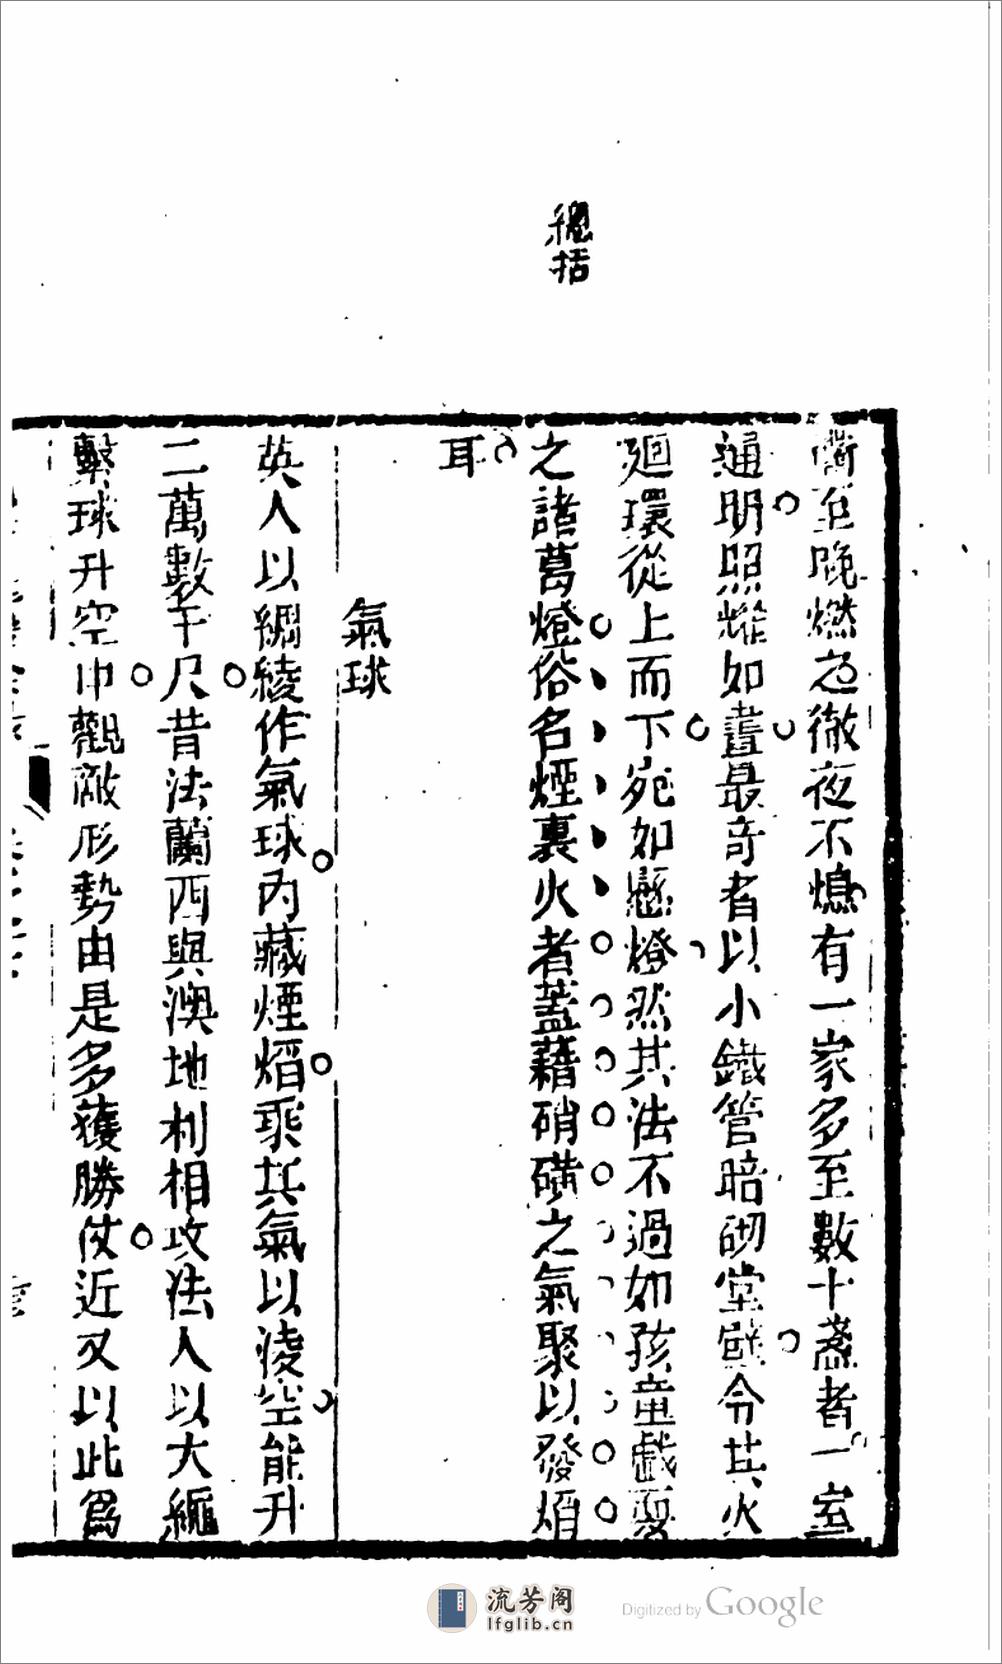 總括
衢至晚燃之徹夜不熄有一家多至數十盞者一室
通明照耀如晝最奇者以小鐵管暗砌堂壁令其火
廻環從上而下宛如懸燈然其法不過如孩童戲耍
之諸葛燈俗名煙裏火者蓋藉硝磺之氣聚以發焰
耳
氣球
英人以綢綾作氣球內藏煙焰乘其氣以淩空能升
二萬數千尺昔法蘭西與澳地利相攻法人以大繩
繫球升空中觀敵形勢由是多獲勝仗近又以此爲
流芳阁
lfglib.cn
Digitized by Google